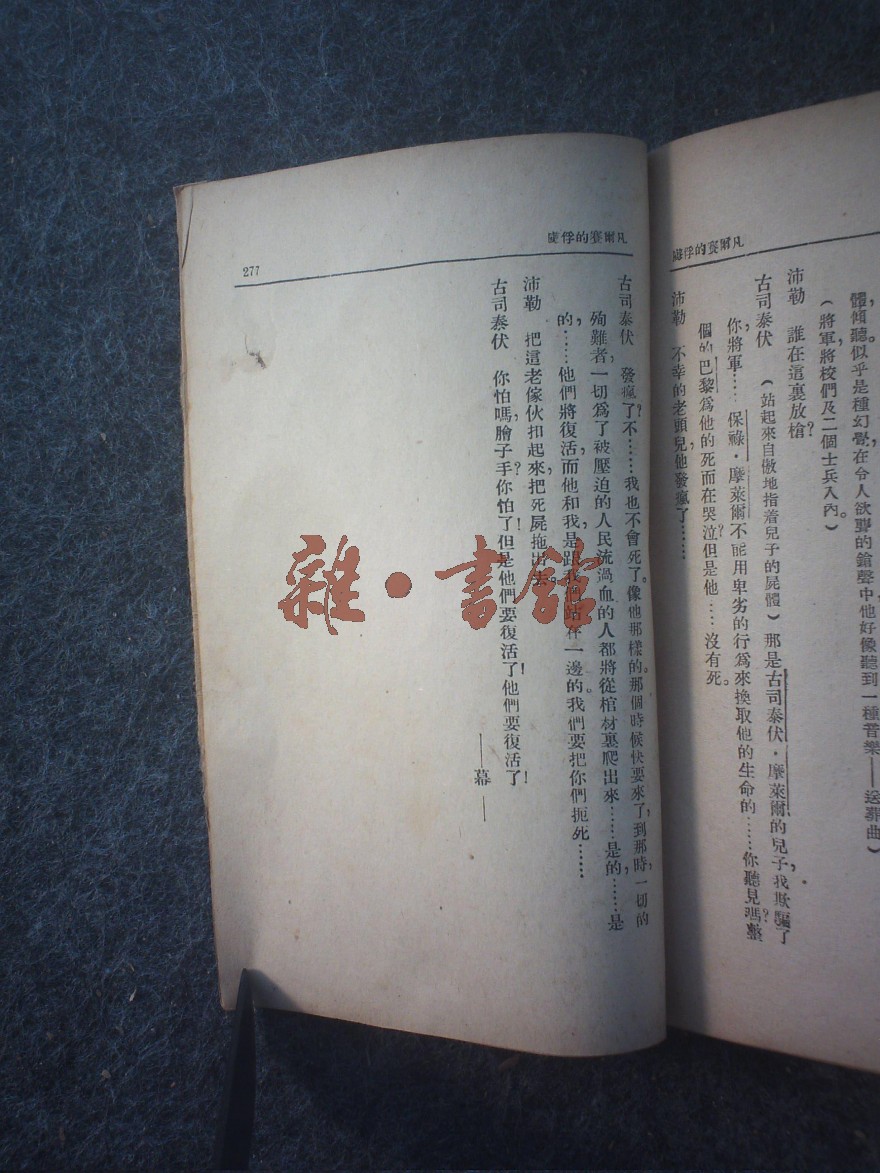 凡爾賽的俘虜
體傾聽。似乎是種幻覺在令人欲聾的鎗聲中，他好像聽到一種音樂——送葬曲）
（將軍，將校們及二個士兵入內。）
沛勒　誰在這裏放槍？
古司泰伏　（站起來自傲地指着兒子的屍體）那是古司泰伏・摩萊爾的兒子，我欺騙了
你，將軍……保祿・摩萊爾不能用卑劣的行爲來換取他的生命的……你聽見嗎？整
個的巴黎爲他的死而在哭泣但是他……沒有死。
沛勒　不幸的老頭兒，他發瘋了……
凡爾賽的俘虜
277
古司泰伏　發瘋了？不……我也不會死了。像他那樣的。那個時候快要來了，到那時，一切的
殉難者，一切爲了被壓迫的人民流過血的人都將從棺材裏爬出來……是的，……是
的，……他們將復活，而他和我，是跟我們站在一邊的。我們要把你們扼死……
沛勒　把這老傢伙扣起來，把死屍拖出去。
古司泰伏　你怕嗎，膾子手？你怕了！但是他們要復活了！他們要復活了！
——幕——
雜・書館